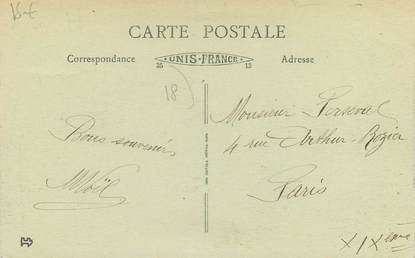 CARTE POSTALE
Correspondance
UNIS-FRANCE
Adresse
18
Bons souvenirs
Monsieur
4 rue Arthur-Rozier
Paris
XIXeme